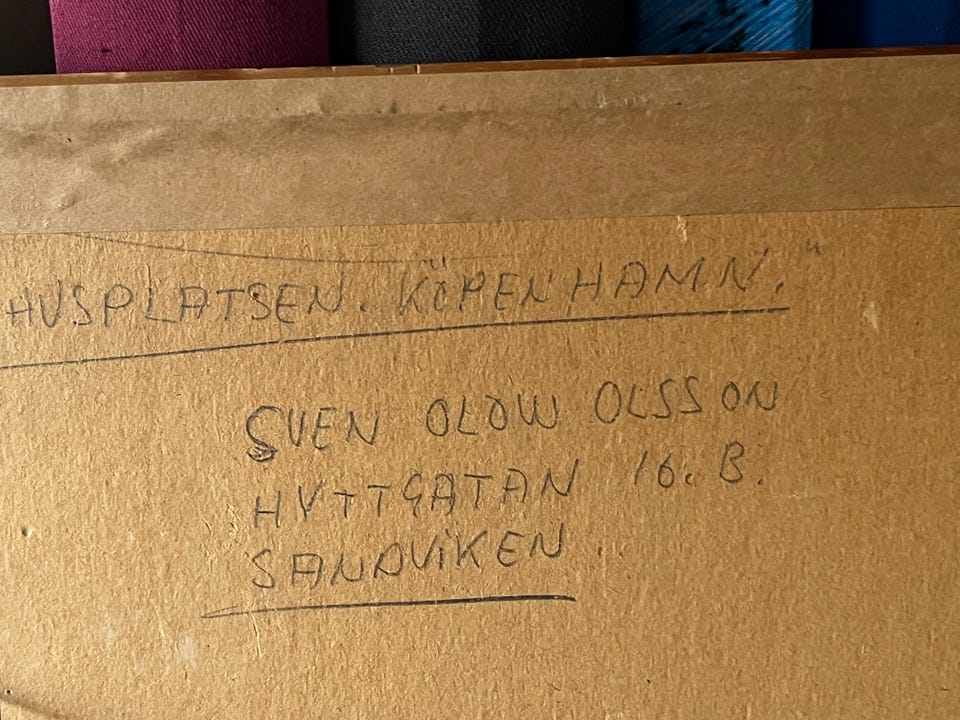 HUSPLATSEN. KÖPENHAMN."
SVEN OLOW OLSSON
HYTTGATAN 16. B.
SANDVIKEN.